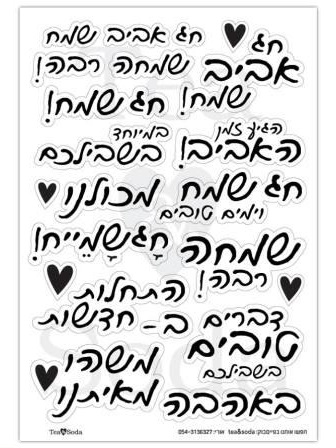 חג אביב שמח
חג
שמחה רבה!
אביב
חג שמח!
שמח!
במיוחד
הגיע זמן
בשבילכם
האביב!
מכולנו
חג שמח
וימים טובים
חַג שָׂמֵייח!
שמחה
רבה!
התחלות
חדשות
ב-
דברים
טובים
משהו
מאיתנו
בשבילכם
באהבה
Tea&Soda
חפשו אותנו בפייסבוק: tea&soda
אורי: 054-3136327